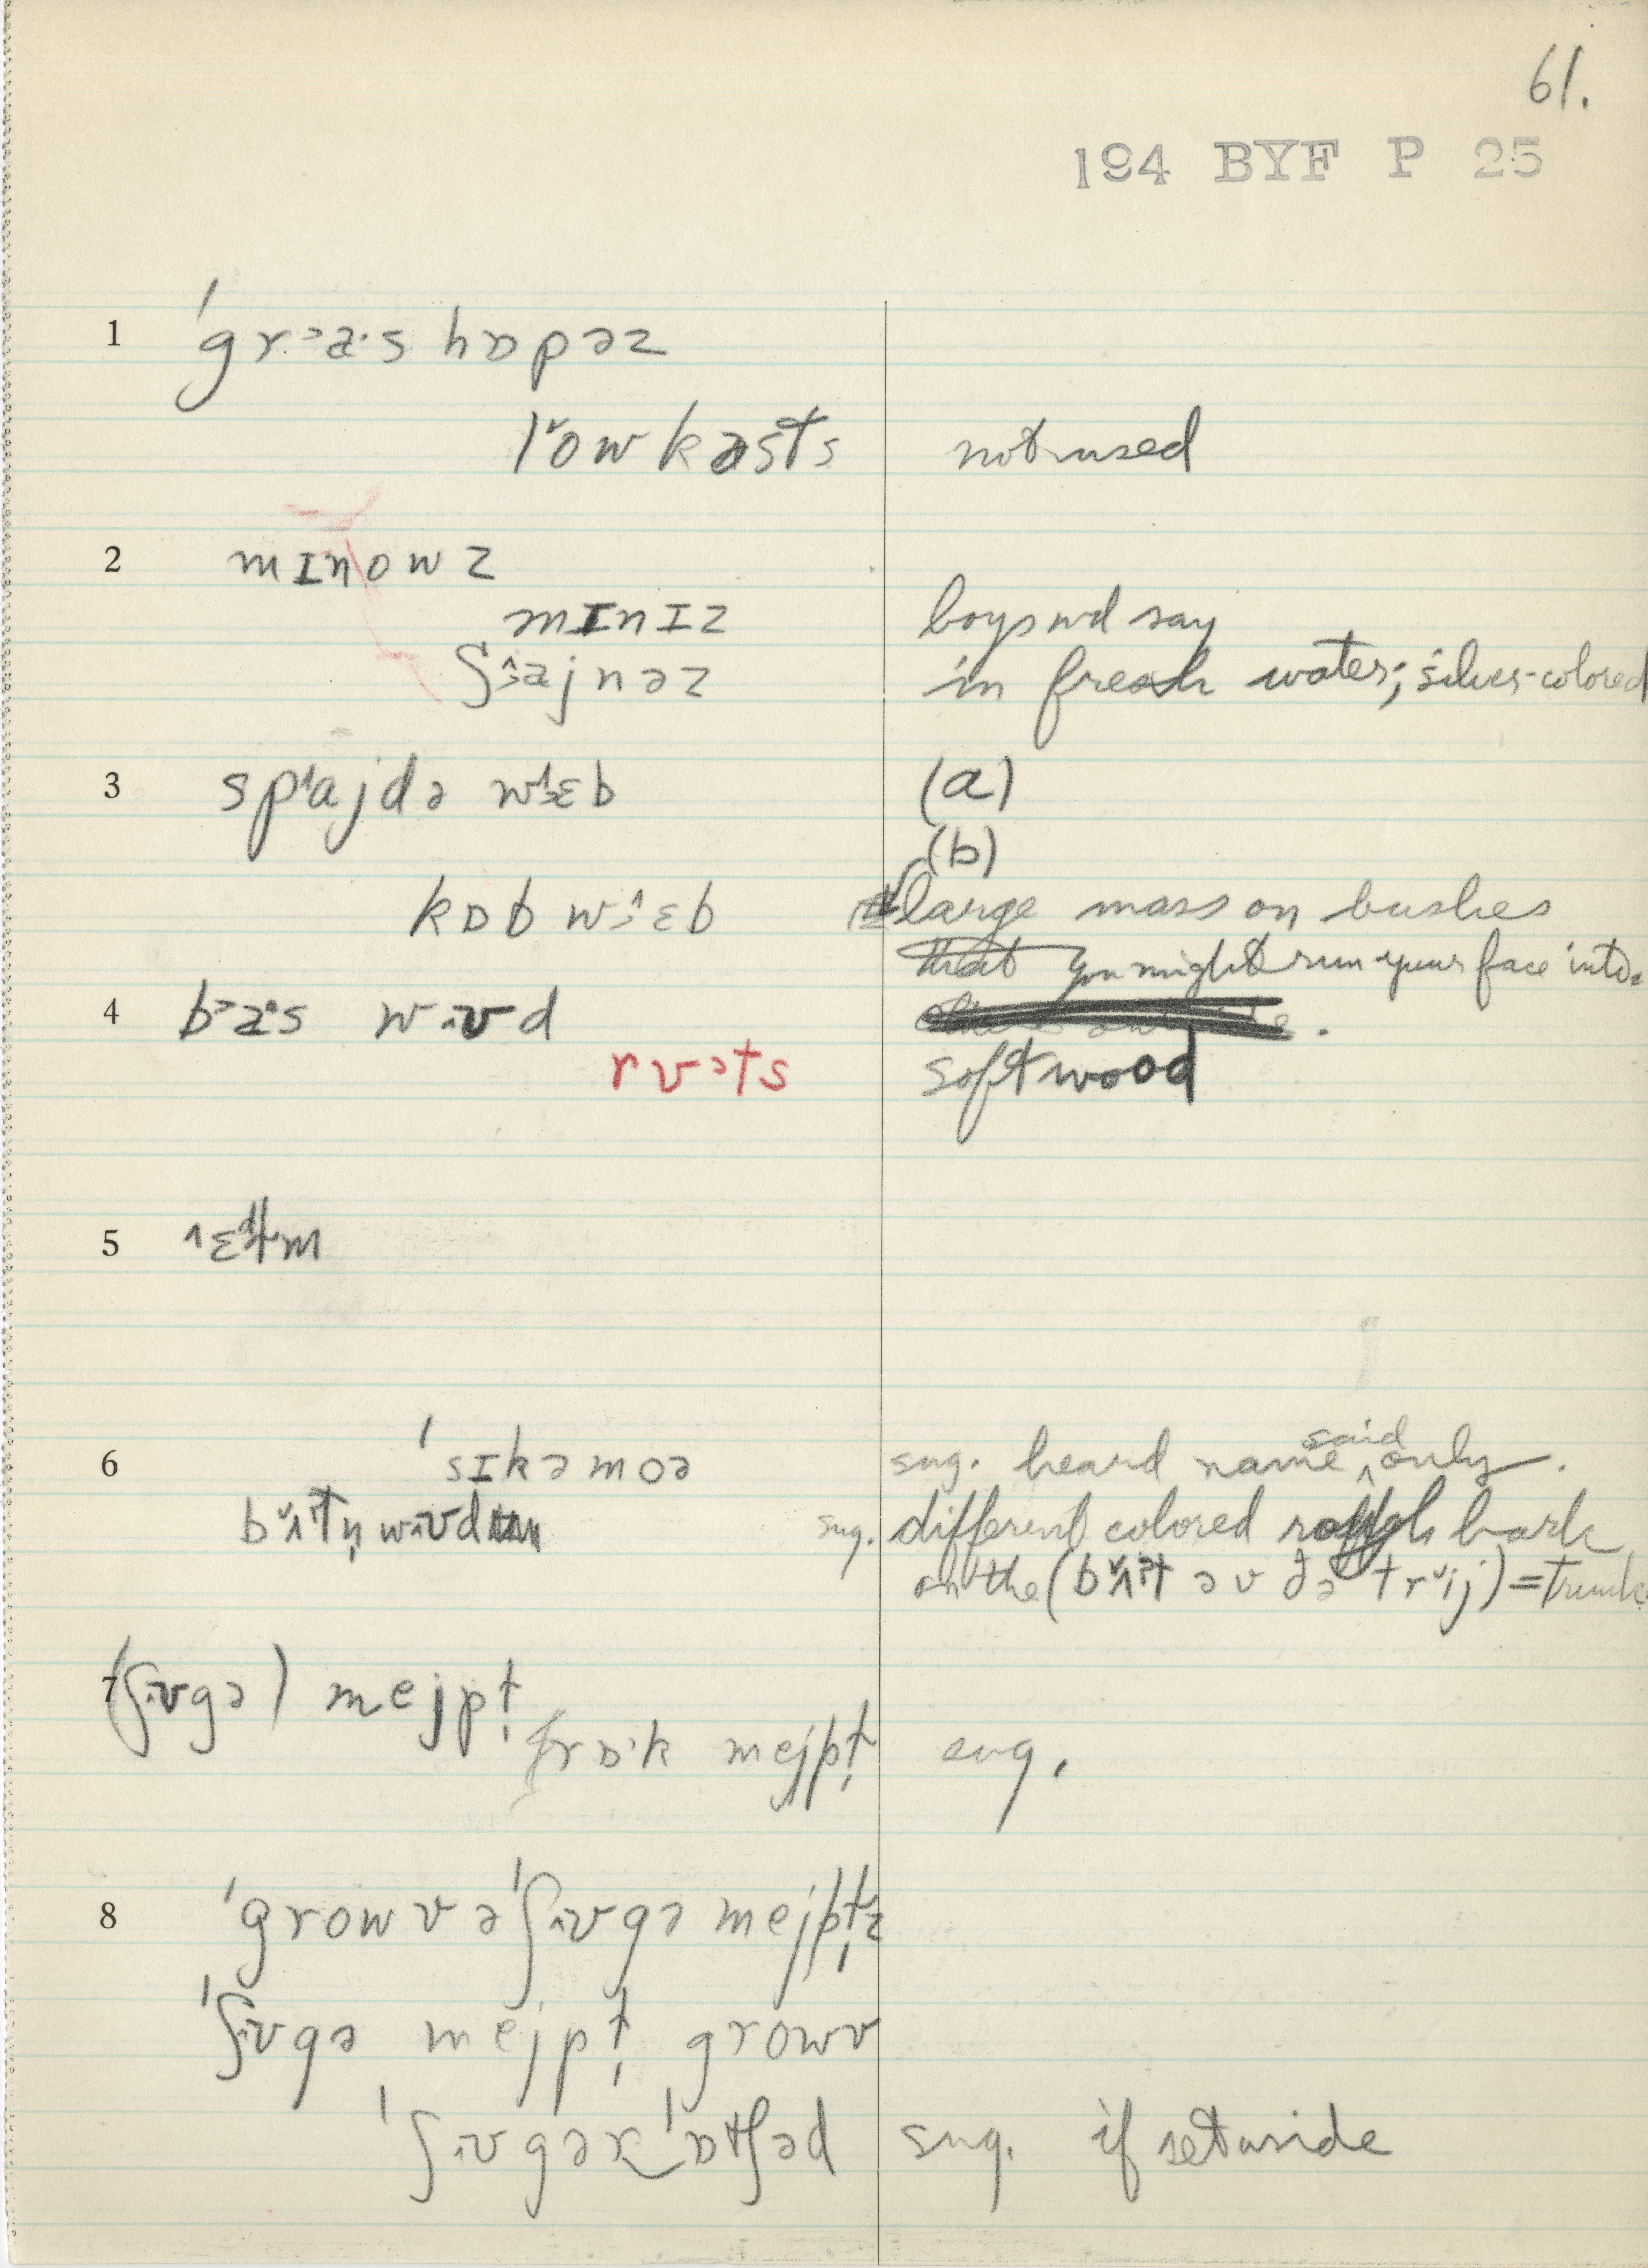 61.
194 BYF P 25
1 ˈgr˃a·s hɒpəz
l˅owkəsts not used
2 mɪnowz
mɪnɪz boys wd say
ʃ˄˃ajnəz in fresh water; silver-colored
3 sp˄ajdə w˄˃ɛb (a)
(b)
kɒbw˃˄ɛb large mass on bushes
that you might run your face into.
4 b˃a·s w˄ʊd
rʊ˃ts softwood
5 ˄ɛltm
6 ˈsɪkəmoə sug. heard name said only.
b˅ʌtn̩w˄ʊd sug. different colored rough bark
on the (b˅ʌt əv ðə tr˅ij) = trunk
7 (ʃ˄ʊgə) mejpɫ̩
frɒ·k mejpɫ̩ sug.
8 ˈgrowv əˈʃ˄ʊgə mejpɫ̩z
ˈʃ˄ʊgə mejpɫ̩ growv
ˈʃ˄ʊgər‿ˈɒtʃəd sug. if set aside